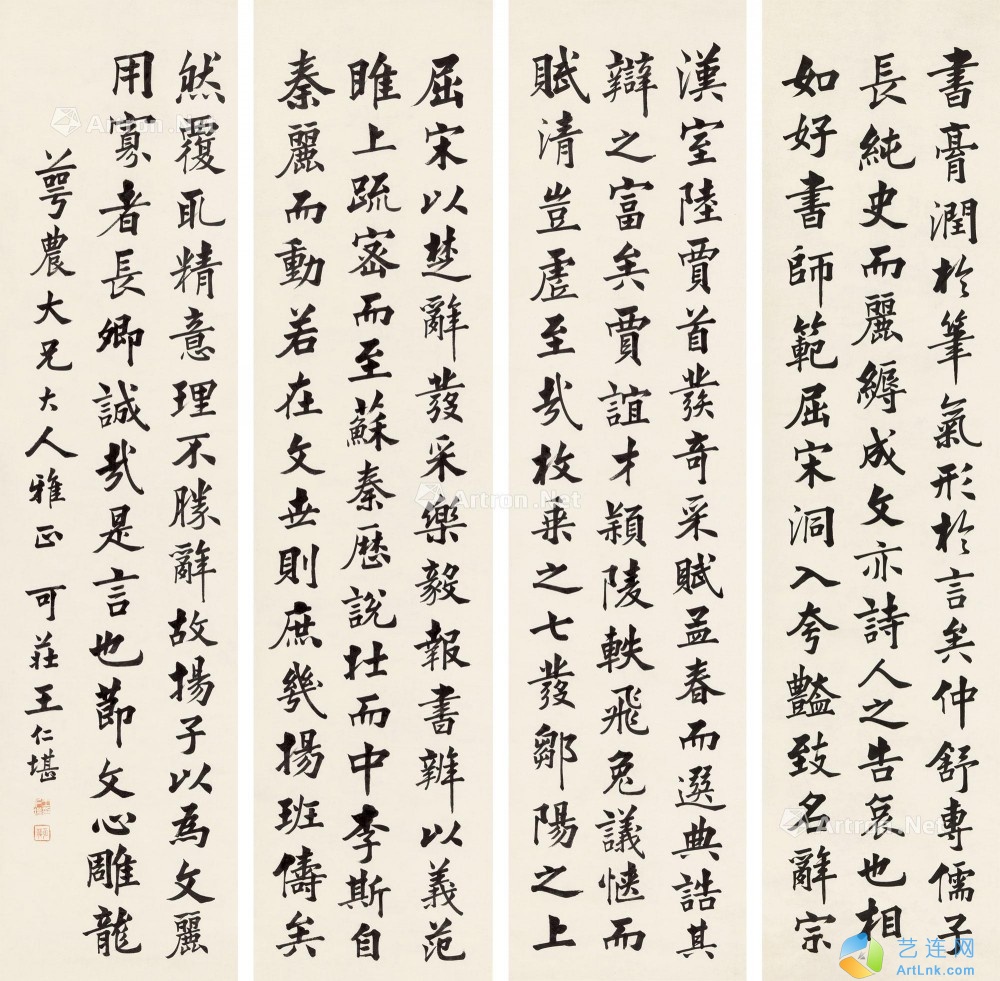 書膏潤於筆氣形於言矣仲舒專儒子
長純史而麗縟成文亦詩人之告哀也相
如好書師範屈宋洞入夸豔致名辭宗
漢室陸賈首發奇采賦孟春而選典誥其
辯之富矣賈誼才穎陵軼飛兔議愜而
賦清豈虛至哉枚乘之七發鄒陽之上
屈宋以楚辭發采樂毅報書辨以義范
雎上疏密而至蘇秦歷說壯而中李斯自
秦麗而動若在文世則庶幾揚班儔矣
然覆取精意理不勝辭故揚子以為文麗
用寡者長卿誠哉是言也節文心雕龍
萼農大兄大人雅正 可莊王仁堪
Artron.Net
Artron.Net
Artron.Net
艺连网
ArtLnk.com